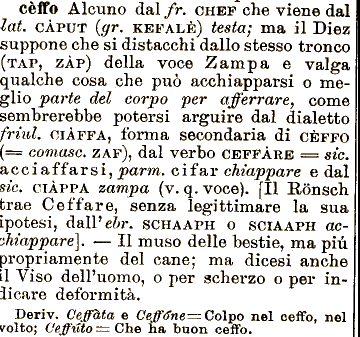 cèffo Alcuno dal fr. CHEF che viene dal
lat. CÀPUT (gr. KEFALÈ) testa; ma il Diez
suppone che si distacchi dallo stesso tronco
(TAP, ZÀP) della voce Zampa e valga
qualche cosa che può acchiapparsi o me-
glio parte del corpo per afferrare, come
sembrerebbe potersi arguire dal dialetto
friul. CIÀFFA, forma secondaria di CÈFFO
(= comasc. ZAF), dal verbo CEFFÀRE = sic.
acciaffarsi, parm. cifar chiappare e dal
sic. CIÀPPA zampa (v. q. voce). [Il Rönsch
trae Ceffare, senza legittimare la sua
ipotesi, dall'ebr. SCHAAPH o SCIAAPH ac-
chiappare]. — Il muso delle bestie, ma più
propriamente del cane; ma dicesi anche
il Viso dell'uomo, o per scherzo o per in-
dicare deformità.
Deriv. Ceffàta e Ceffóne = Colpo nel ceffo, nel
volto; Ceffùto = Che ha buon ceffo.